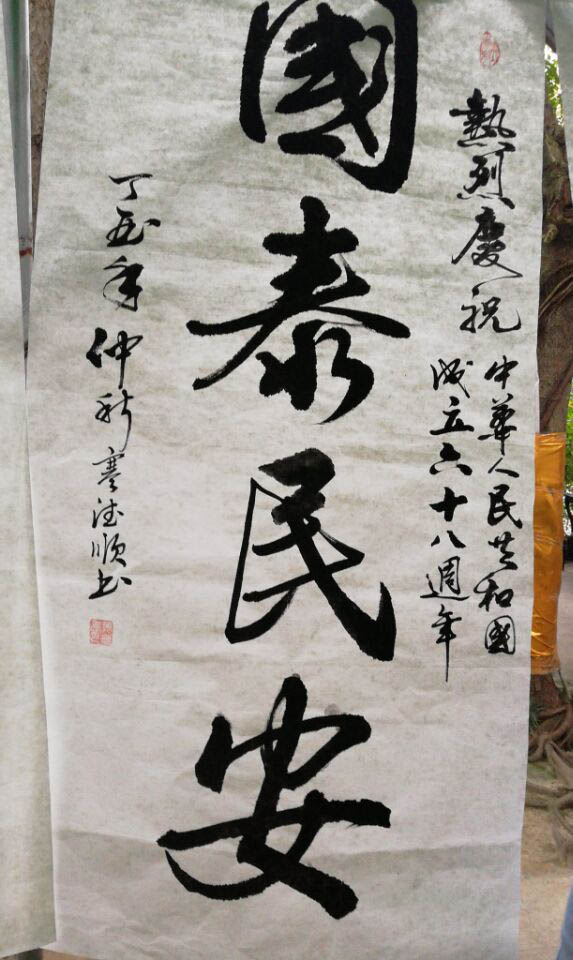 熱烈慶祝
中華人民共和國
成立六十八週年
國泰民安
丁酉年仲秋蹇德順书